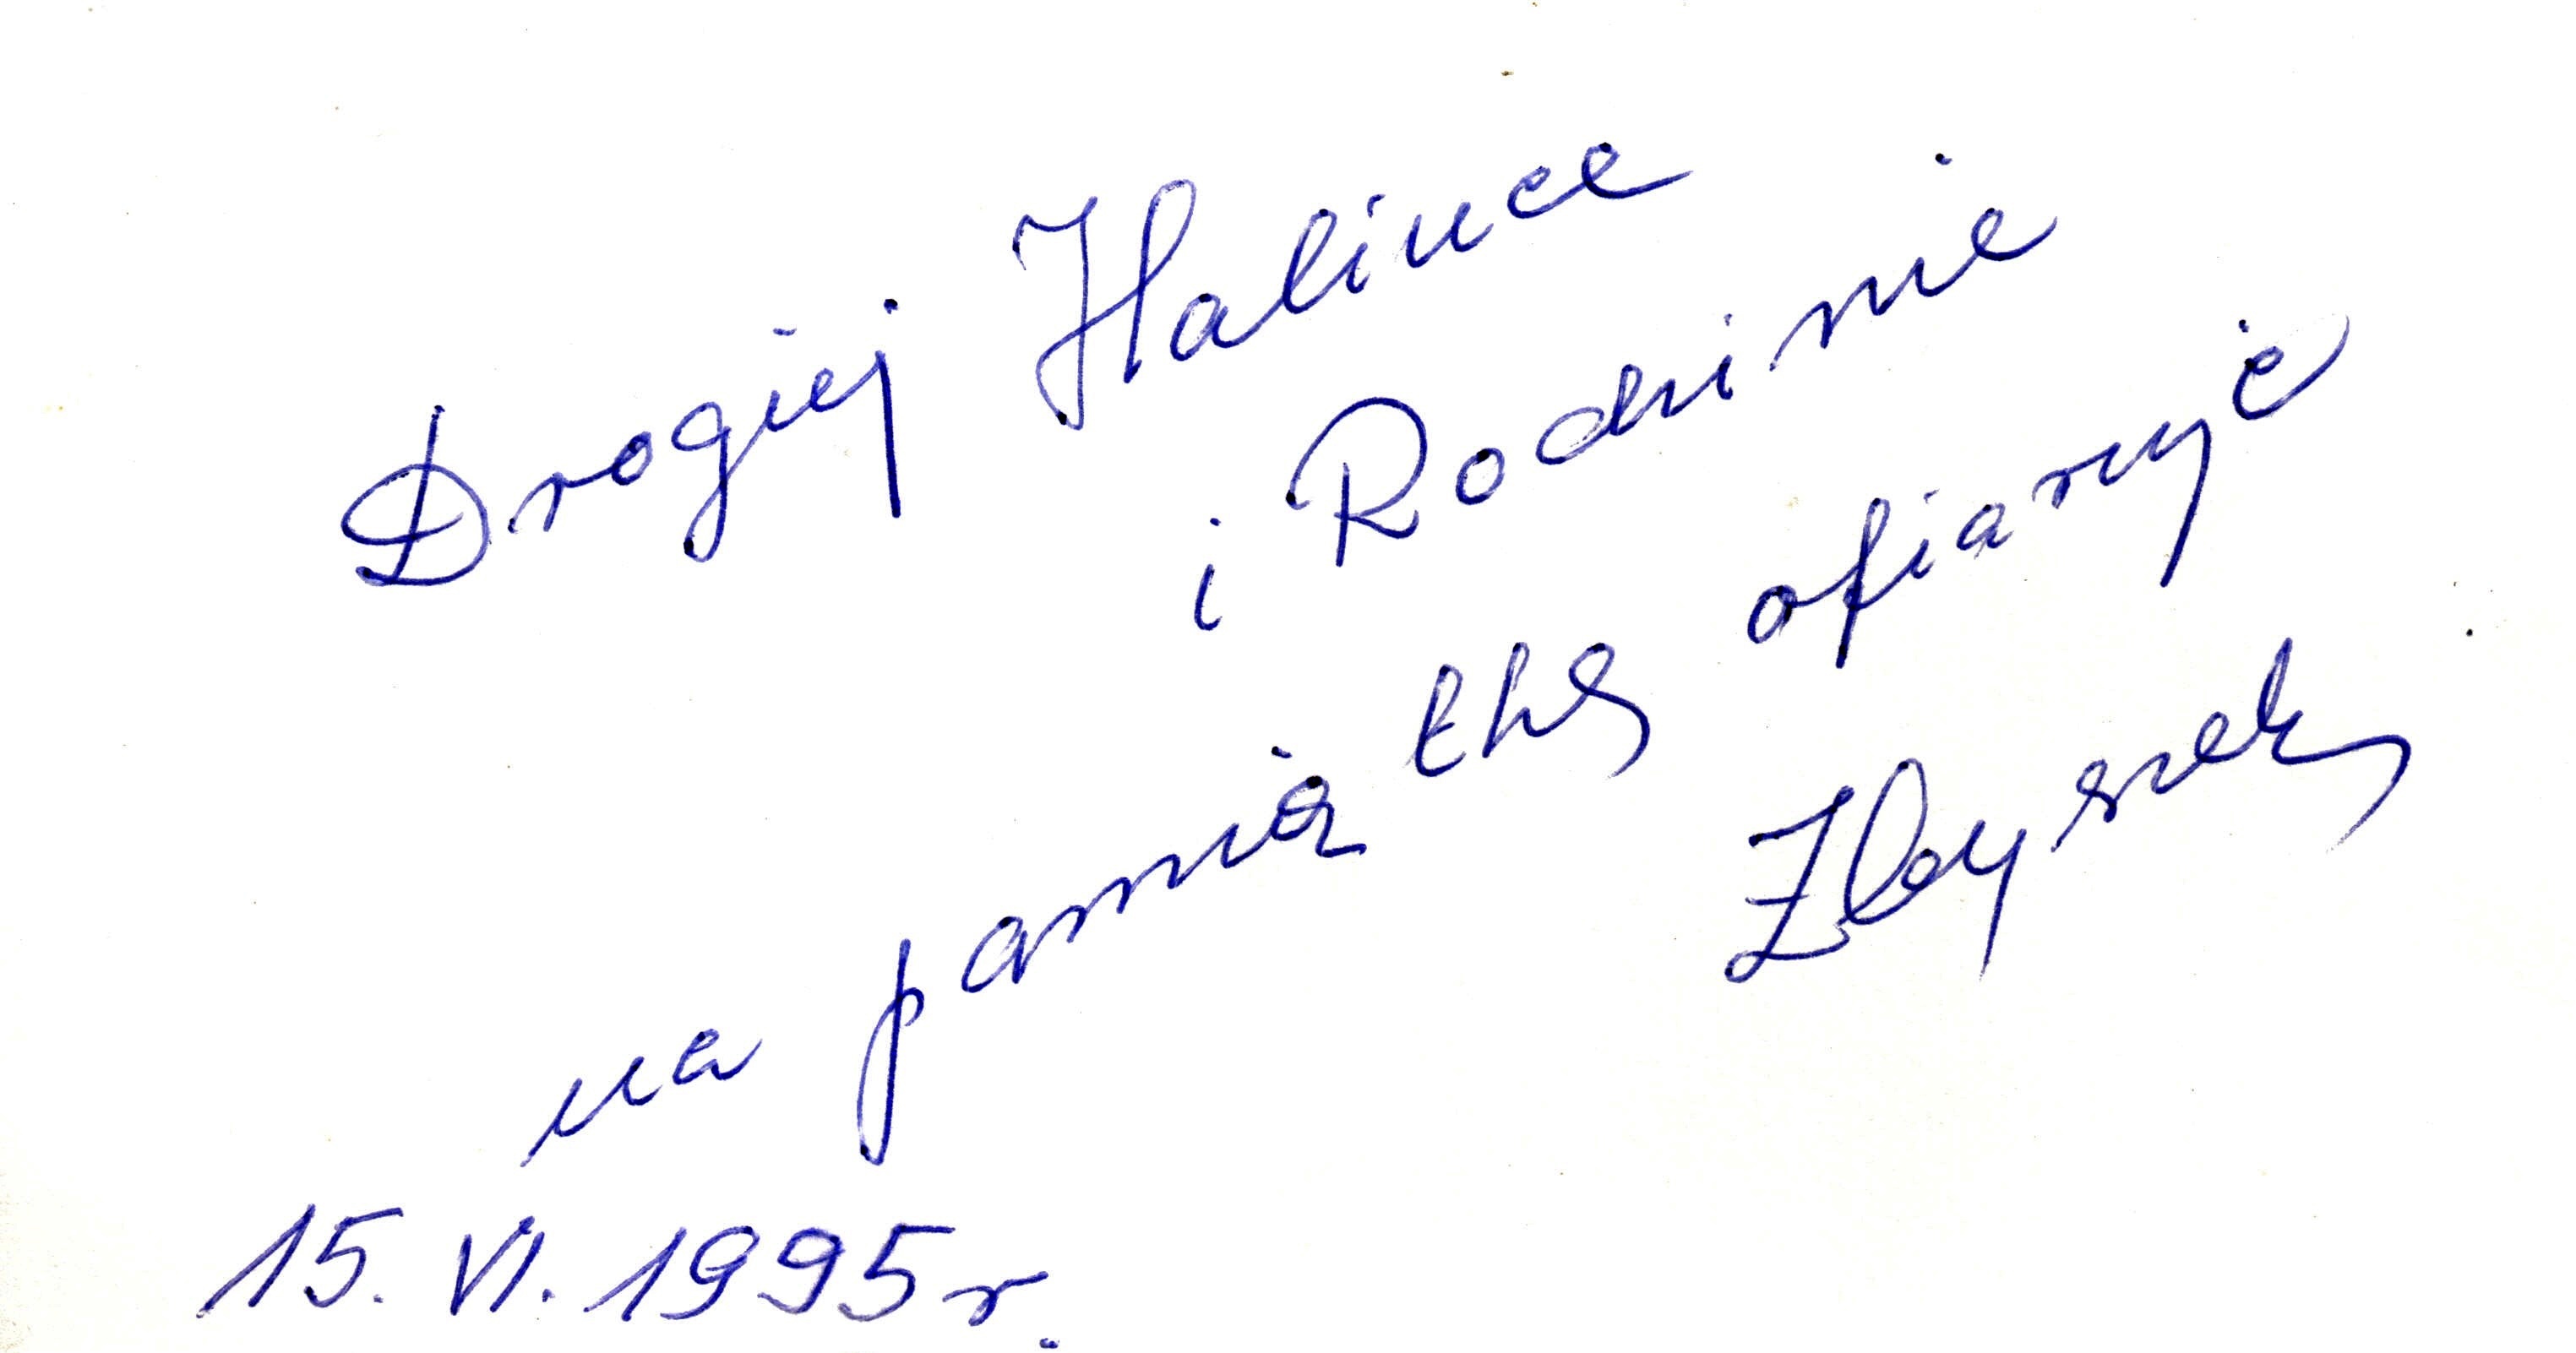 Drogiej Halince
i Rodzinie
na pamiątkę ofiaruje
Zbyszek
15. VI. 1995 r.